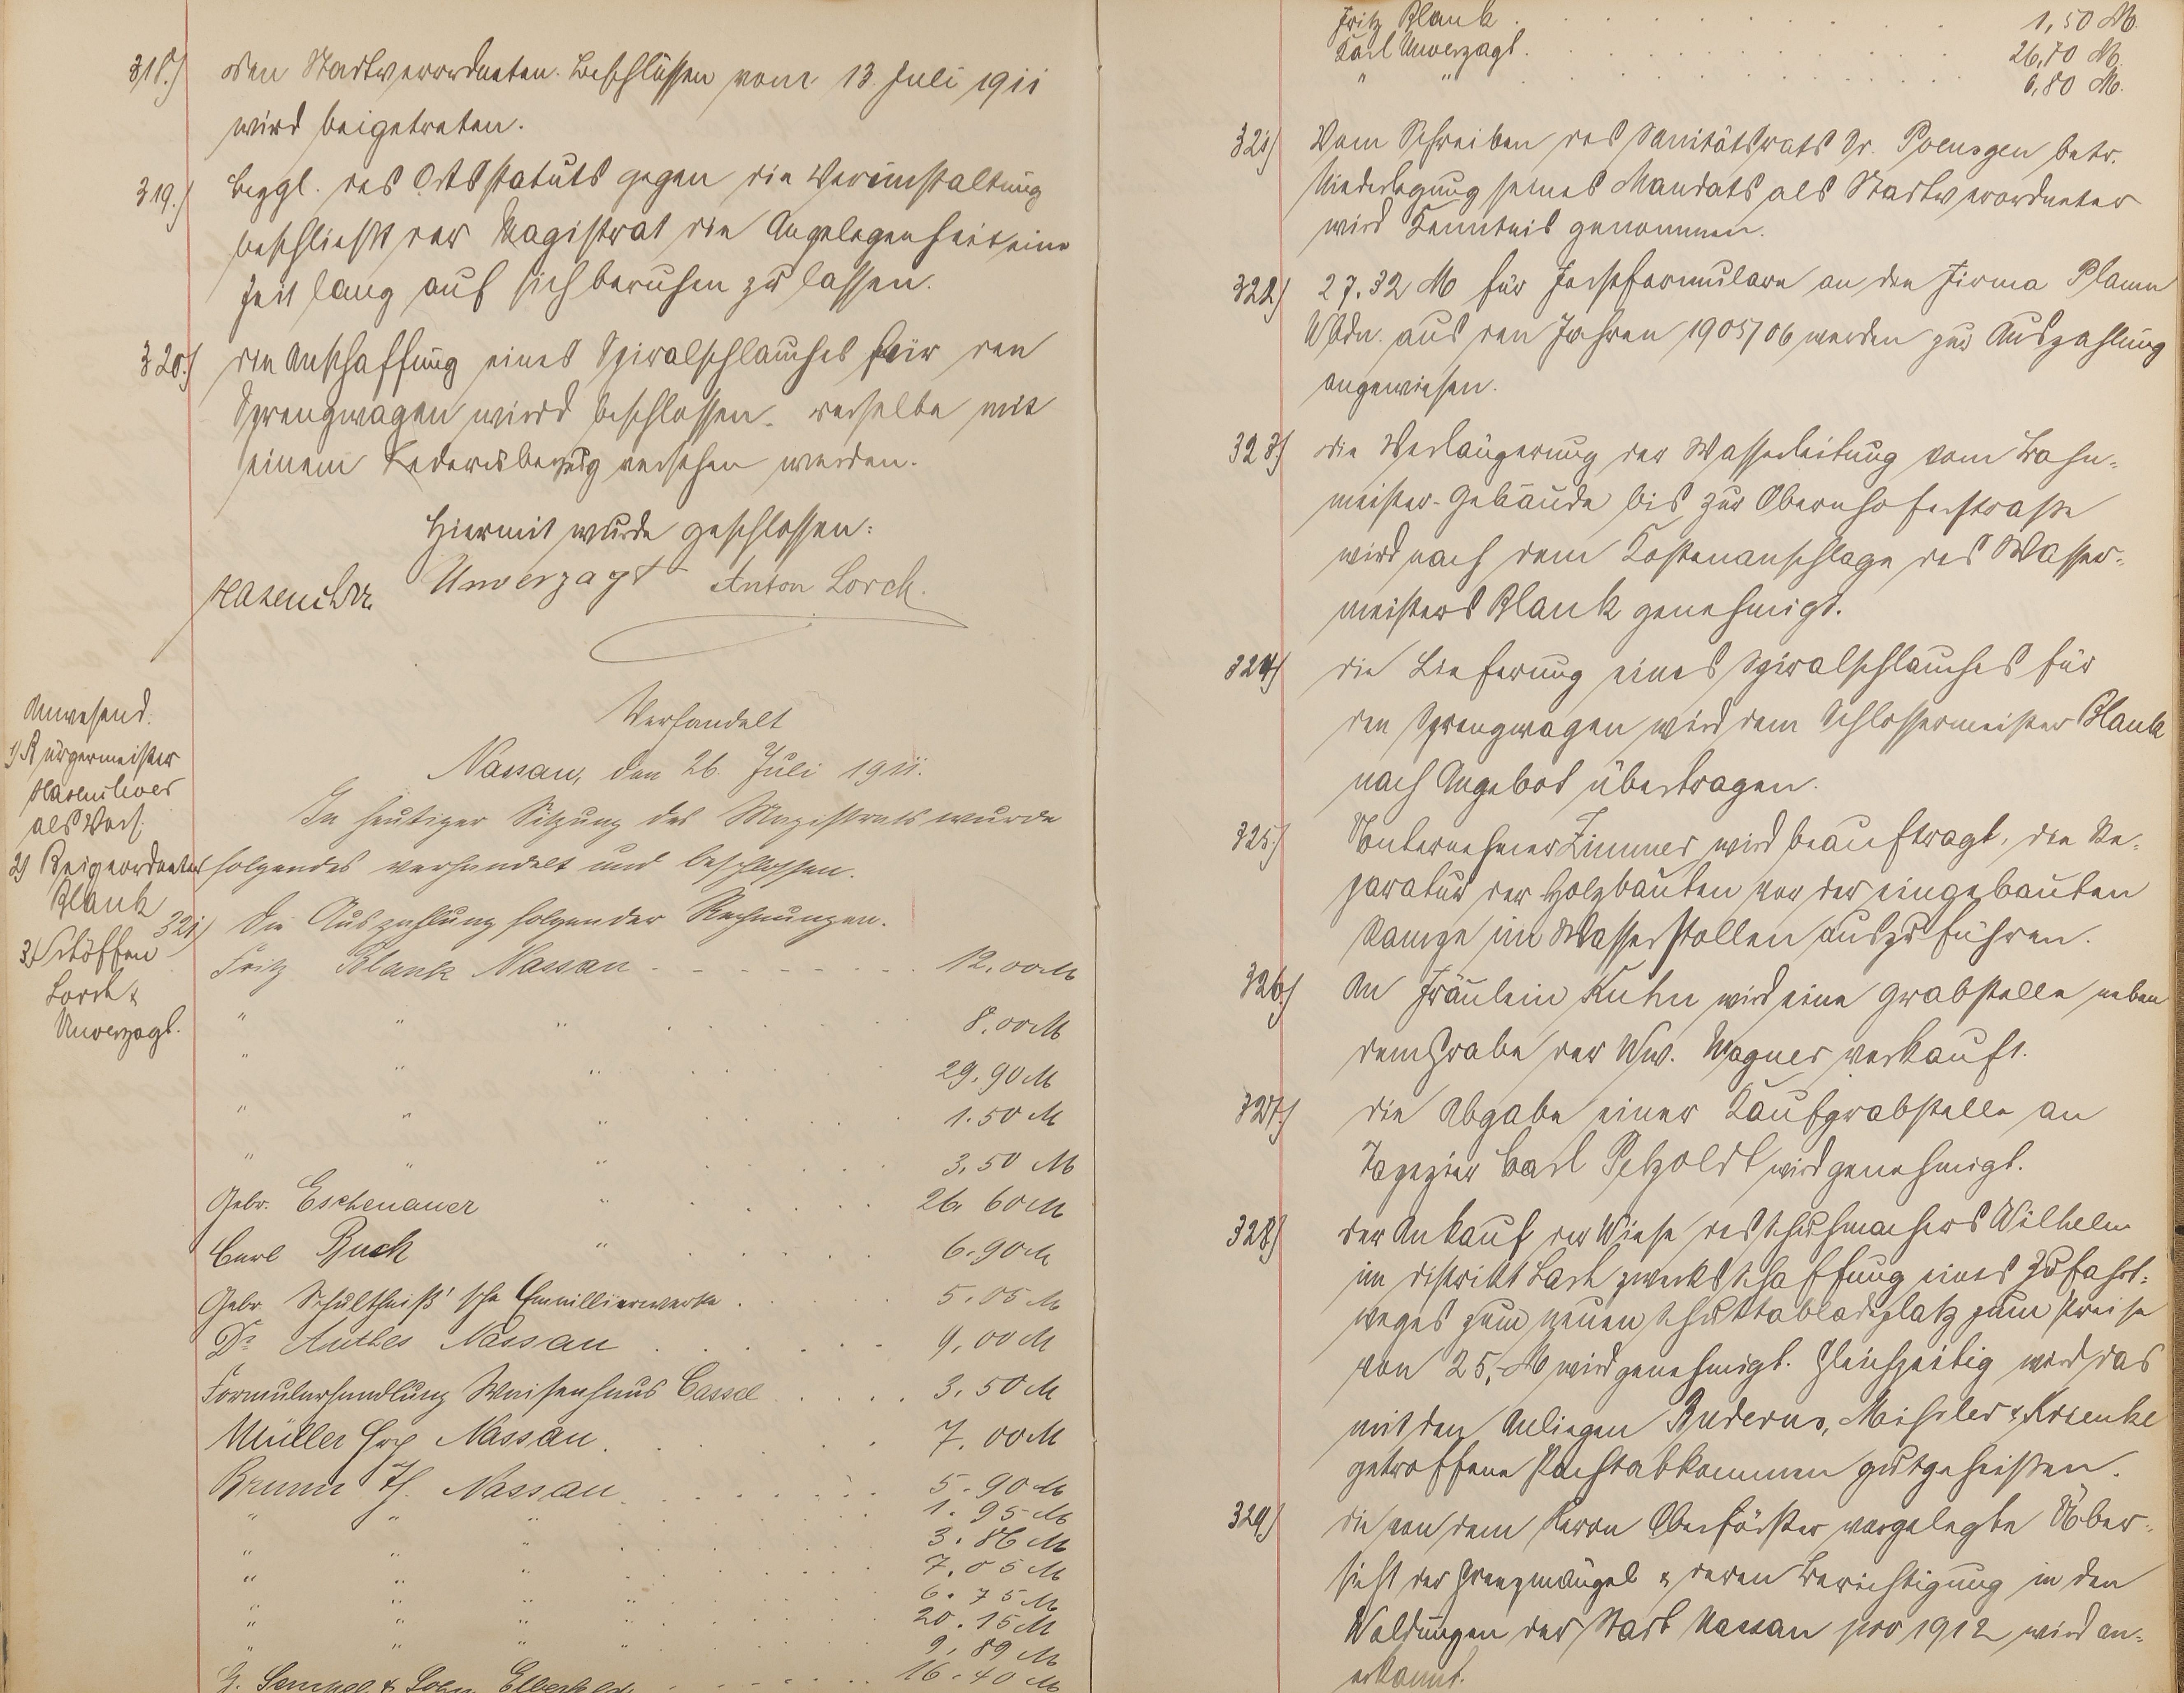 318.) Den Stadtverordneten-Beschlüssen vom 13. Juli 1911
wird beigetreten.
319.) Bezgl. des Ortsstatuts gegen die Verunstaltung
beschließt der Magistrat die Angelegenheit eine
Zeit lang auf sich beruhen zu lassen.
320.) Die Anschaffung eines Spiralschlauches für den
Sprengwagen wird beschlossen. derselbe mit
einem versehen werden.
Hiermit wurde geschlossen:
Hasenclever Unverzagt Anton Lorch.
Verhandelt
Nassau, den 26. Juli 1911.
In heutiger Sitzung des Magistrats wurde
folgendes verhandelt und beschlossen.
Anwesend.
1) Bürgermeister
Hasenclever
als Vors.
2) Beigeordneter
Blank
3) Schöffen
Lorch &
Unverzagt.
321) Die Auszahlung folgender Rechnungen.
Fritz Blank Nassau 12.00 M
" " " 8.00 M
" " " 29.90 M
" " " 1.50 M
" " " 3,50 M
Gebr. Eschenauer " 26.60 M
Carl Buck " 6.90 M
Gebr. Schultheiß'sche Emaillierwerke 5.05 M
Dr. Anthes Nassau 9,00 M
Formularhandlung Waisenhaus Cassel 3.50 M
Müller Nassau 7.00 M
Brunn Th. Nassau 5.90 M
" " " 1.95 M
" " " 3.86 M
" " " 7.05 M
" " " " 6.75 M
" " " " 20.15 M
" " " " 9,89 M
& Sohn Elberfeld 16.40 M
Fritz Blank 1,50 M.
Karl Unverzagt. 26,70 M.
" " 6,80 M.
321) Vom Schreiben des Sanitätsrats Dr. Poensgen betr.
Niederlegung seines Mandats als Stadtverordneter
wird Kenntnis genommen.
322) 27.32 M für Forstformulare an die Firma Plaum
Wbdn. aus den Jahren 1905/06 werden zur Auszahlung
angewiesen.
323) Die Verlängerung der Wasserleitung vom Bahn-
meister-Gebäude bis zur Obernhoferstraße
wird nach dem Kostenanschlage des Wasser-
meisters Blank genehmigt.
324) Die Lieferung eines Spiralschlauches für
den Sprengwagen wird dem Schlossermeister Blank
nach Angebot übertragen.
325.) Unternehmer Zimmer wird beauftragt, die Re-
paratur der Holzbauten vor der eingebauten
Rampe im Wasserstollen auszuführen.
326.) An Fräulein Kuhn wird eine Grabstelle neben
dem Grabe der Ww. Wagner verkauft.
327.) Die Abgabe einer Kaufgrabstelle an
Tapezier Carl Petzoldt wird genehmigt.
328) Der Ankauf der Wiese des Schuhmachers Wilhelm
im Distrikt zwecks Schaffung eines Zufahrt-
weges zum neuen Schuttabladeplatz zum Preise
von 25,- M wird genehmigt. Gleichzeitig wird das
mit den Anliegern Buderus, Mihsler &
getroffene Pachtabkommen gutgeheißen.
329) Die von dem Herrn Oberförster vorgelegte Über-
sicht der Grenzmängel & deren Berichtigung in den
Waldungen der Stadt Nassau pro 1912 wird an-
erkannt.